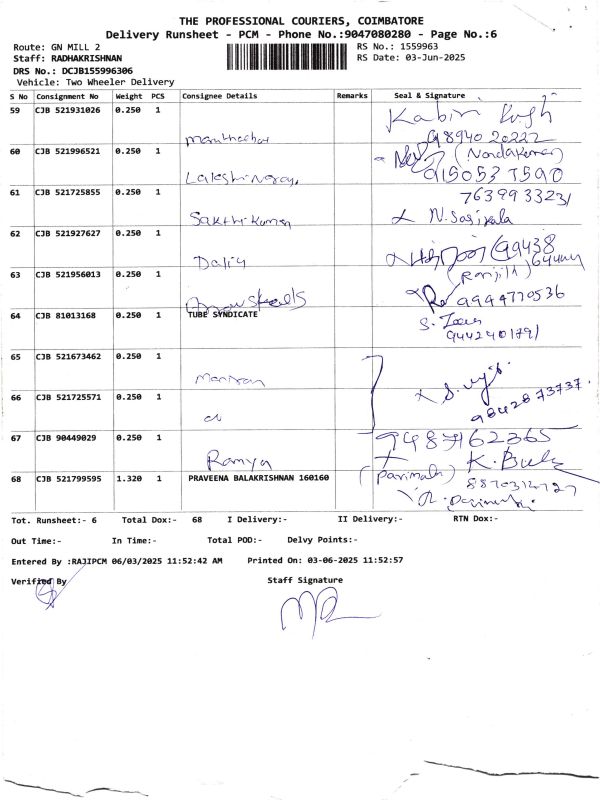 THE PROFESSIONAL COURIERS, COIMBATORE
Delivery Runsheet - PCM - Phone No.:9047080280 - Page No.:6
Route: GN MILL 2
RS No.: 1559963
Staff: RADHAKRISHNAN
RS Date: 03-Jun-2025
DRS No.: DCJB155996306
Vehicle: Two Wheeler Delivery
S No Consignment No Weight PCS Consignee Details Remarks Seal & Signature
59 CJB 521931026 0.250 1
Kabir
98940 20222
60 CJB 521996521 0.250 1
(Nandakumar)
915053 7590
61 CJB 521725855 0.250 1
7639933231
Sakthi Kumar N. Sasikala
62 CJB 521927627 0.250 1
99438
(Ranjith)
63 CJB 521956013 0.250 1
9944770536
64 CJB 81013168 0.250 1 TUBE SYNDICATE
9442401791
65 CJB 521673462 0.250 1
66 CJB 521725571 0.250 1
98428 73737.
67 CJB 90449029 0.250 1
9487162365
Ramya
68 CJB 521799595 1.320 1 PRAVEENA BALAKRISHNAN 160160
(Parimala)
Tot. Runsheet:- 6 Total Dox:- 68 I Delivery:- II Delivery:- RTN Dox:-
Out Time:- In Time:- Total POD:- Delvy Points:-
Entered By :RAJIPCM 06/03/2025 11:52:42 AM Printed On: 03-06-2025 11:52:57
Verified By Staff Signature